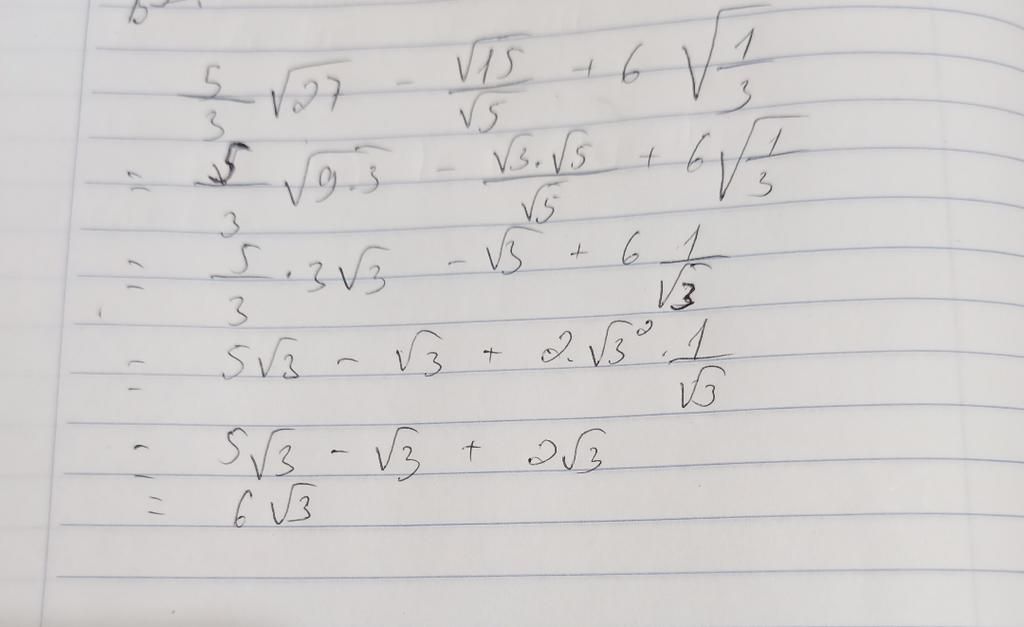 5/3 √27 - √15/√5 + 6 √(1/3)
= 5/3 √(9.3) - (√3.√5)/√5 + 6 √(1/3)
= 5/3 . 3√3 - √3 + 6 1/√3
= 5√3 - √3 + 2.√3² . 1/√3
= 5√3 - √3 + 2√3
= 6√3